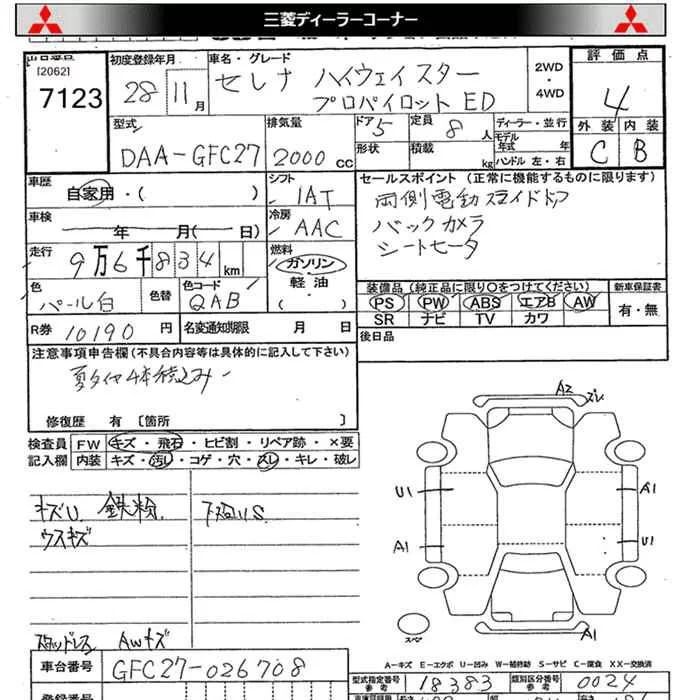 三菱ディーラーコーナー
出品番号
[2062]
7123
初度登録年月
28年 11月
車名・グレード
セレナ ハイウェイスター
プロパイロット ED
2WD
・
4WD
評価点
4
外装 内装
C B
型式
DAA-GFC27
排気量
2000 cc
ドア 5
定員 8 人
形状
積載 kg
ディーラー・並行
モデル年式 年
ハンドル 左・右
車歴
自家用・( )
シフト
IAT
冷房
AAC
車検
年 月( 日)
走行
9万6千834 km
燃料
ガソリン
軽油
( )
色
パール白
色替
色コード
QAB
R券 10190 円
名変通知期限 月 日
セールスポイント (正常に機能するものに限ります)
両側電動スライドドア
バックカメラ
シートヒータ
装備品 (純正品に限り○をつけてください)
PS PW ABS エアB AW
SR ナビ TV カワ
新車保証書
有・無
後日品
注意事項申告欄(不具合内容等は具体的に記入して下さい)
夏タイヤ4本積込み
修復歴 有 [箇所 ]
検査員
記入欄
FW キズ・飛石・ヒビ割・リペア跡・×要
内装 キズ・汚レ・コゲ・穴・スレ・キレ・破レ
キズU 鉄粉 下廻りS
ウスキズ
スタッドレス AWキズ
A2 ズレ
U1 A1
A1 U1
スペア
A1
A-キズ E-エクボ U-凹み W-補修跡 S-サビ C-腐食 XX-交換済
車台番号
GFC27-026708
型式指定番号
参考
18383
類別区分番号
参考
0024
登録番号